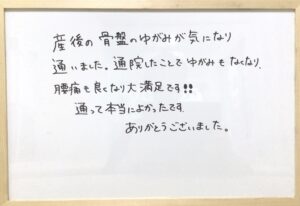 産後の骨盤のゆがみが気になり
通いました。通院したことでゆがみもなくなり、
腰痛も良くなり大満足です!!
通って本当によかったです。
ありがとうございました。